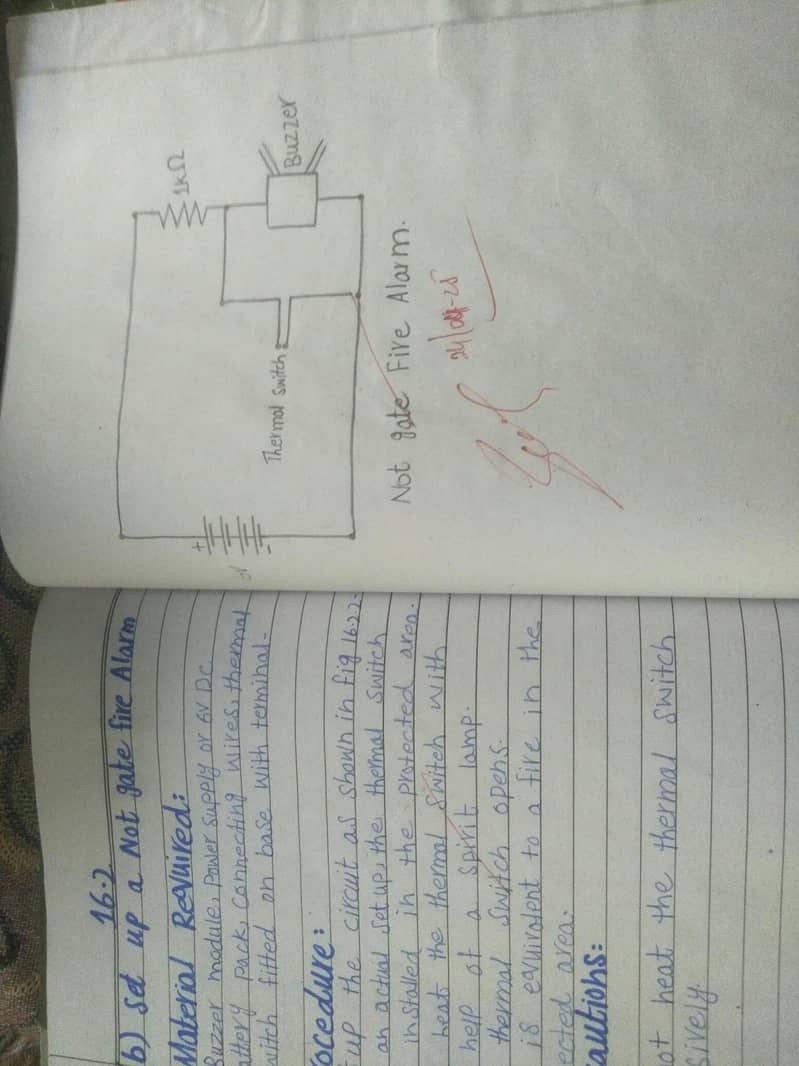 16.2
b) Set up a Not gate fire Alarm
Material Required:
Buzzer module, Power supply or 6V DC
attery pack, connecting wires, thermal
witch fitted on base with terminal.
ocedure:
up the circuit as shown in fig 16.2.2.
an actual setup, the thermal switch
installed in the protected area.
heat the thermal switch with
help of a spirit lamp.
thermal switch opens.
is equivalent to a fire in the
ected area.
autions:
ot heat the thermal switch
sively.
1KΩ
Buzzer
Thermal switch
+
-
Not gate Fire Alarm.